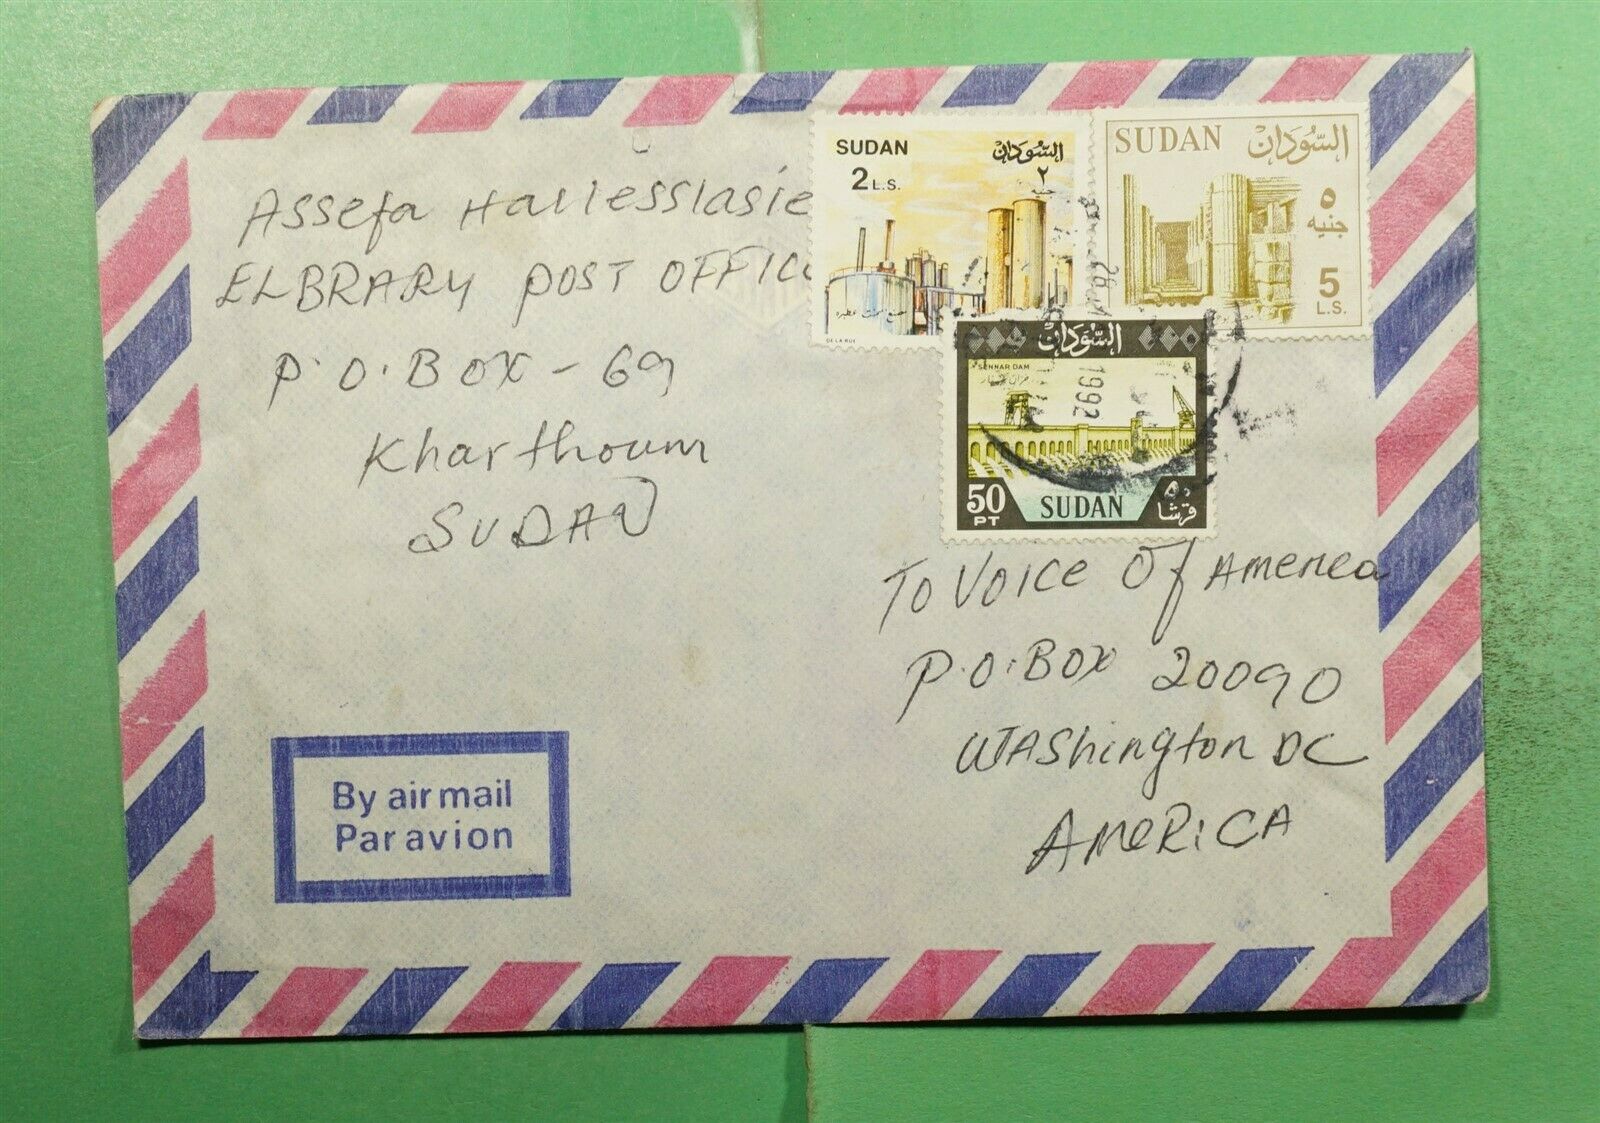 Assefa Hailesslasie
ELBRARY POST OFFIC
P.O.BOX - 69
Kharthoum
SUDAN
SUDAN السودان
2 L.S. ٢
جنيه
مصنع اسمنت عطبرة
DE LA RUE
SUDAN السودان
٥
جنيه
5
L.S.
السودان
SENNAR DAM
خزان سنار
50
PT
SUDAN
٥٠
قرشا
1992
TO VOICE OF AMERICA
P.O.BOX 20090
WASHington DC
AMERICA
By air mail
Par avion